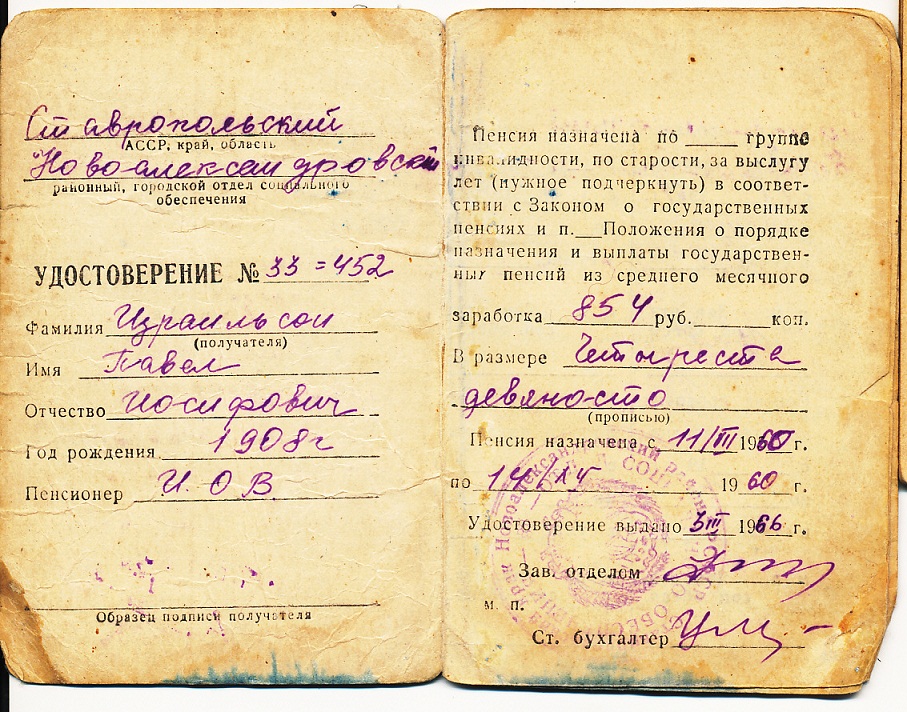 Ставропольский
АССР, край, область
Новоалександровский
районный, городской отдел социального
обеспечения
УДОСТОВЕРЕНИЕ № 33=452
Фамилия Израильсон
(получателя)
Имя Павел
Отчество Иосифович
Год рождения 1908г
Пенсионер И.О В
Образец подписи получателя
Пенсия назначена по ____ группе
инвалидности, по старости, за выслугу
лет (нужное подчеркнуть) в соответ-
ствии с Законом о государственных
пенсиях и п.__Положения о порядке
назначения и выплаты государствен-
ных пенсий из среднего месячного
заработка 854 руб.______коп.
В размере Четыреста
девяносто
(прописью)
Пенсия назначена с 11/III 1960 г.
по 14/ 1960 г.
Удостоверение выдано 3III 1966 г.
Зав. отделом
м. п.
Ст. бухгалтер